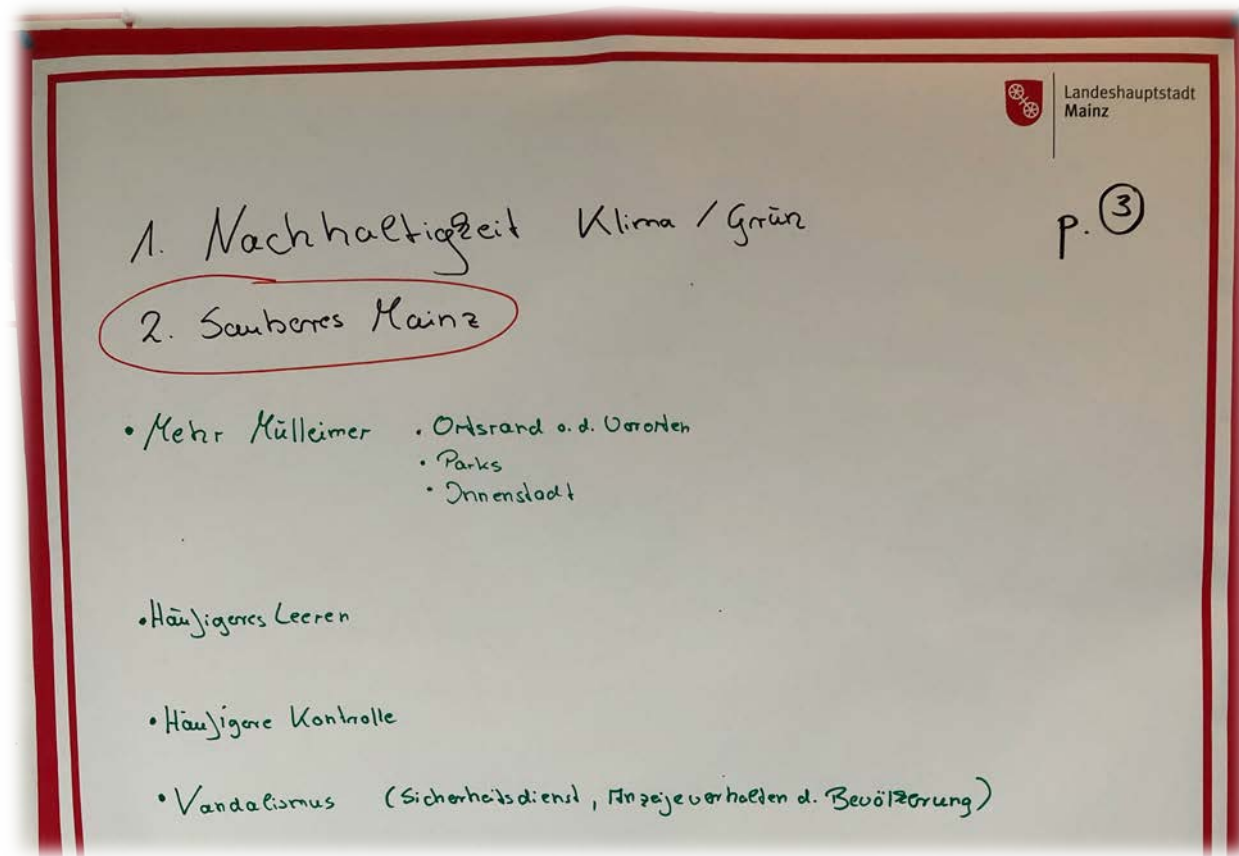 Landeshauptstadt
Mainz
1. Nachhaltigkeit Klima / Grün
p. 3
2. Sauberes Mainz
• Mehr Mülleimer • Ortsrand o. d. Vororten
• Parks
• Innenstadt
• Häufigeres Leeren
• Häufigere Kontrolle
• Vandalismus (Sicherheitsdienst, Anzeigeverhalten d. Bevölkerung)